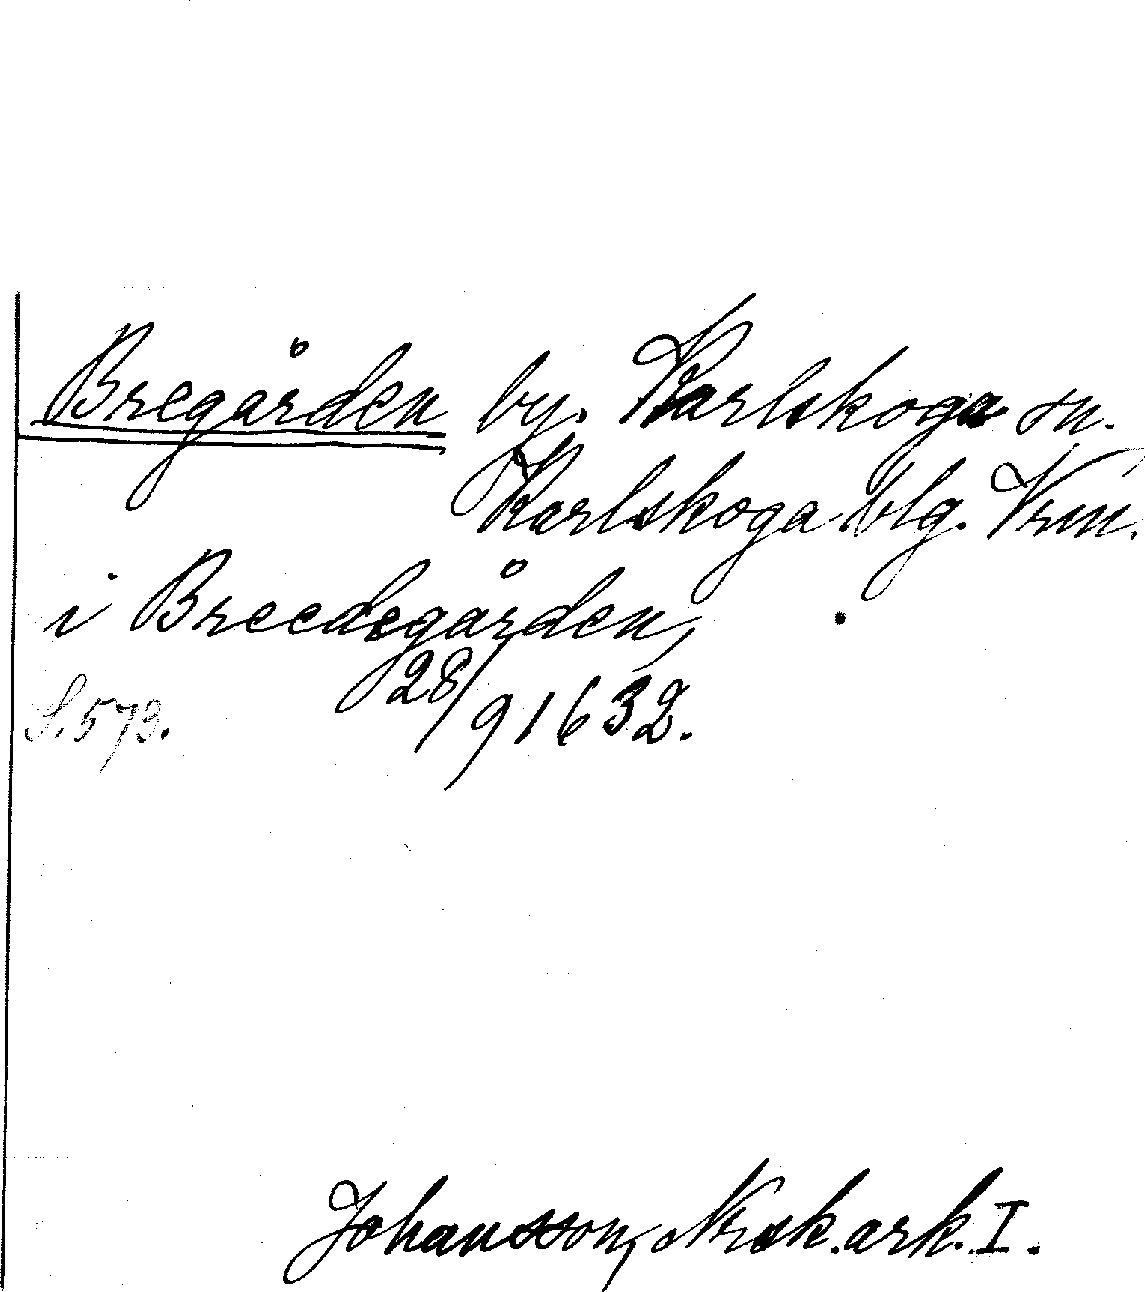 Bregården by. Karlskoga sn.
Karlskoga blg. Vrm.
i Breedegården,
S. 573. 28/9 1632.
Johansson, Norsk. ark. I.